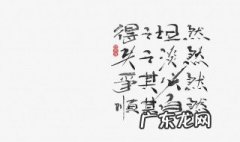 得之坦然
失之淡然
爭其必然
順其自然
广东龙网